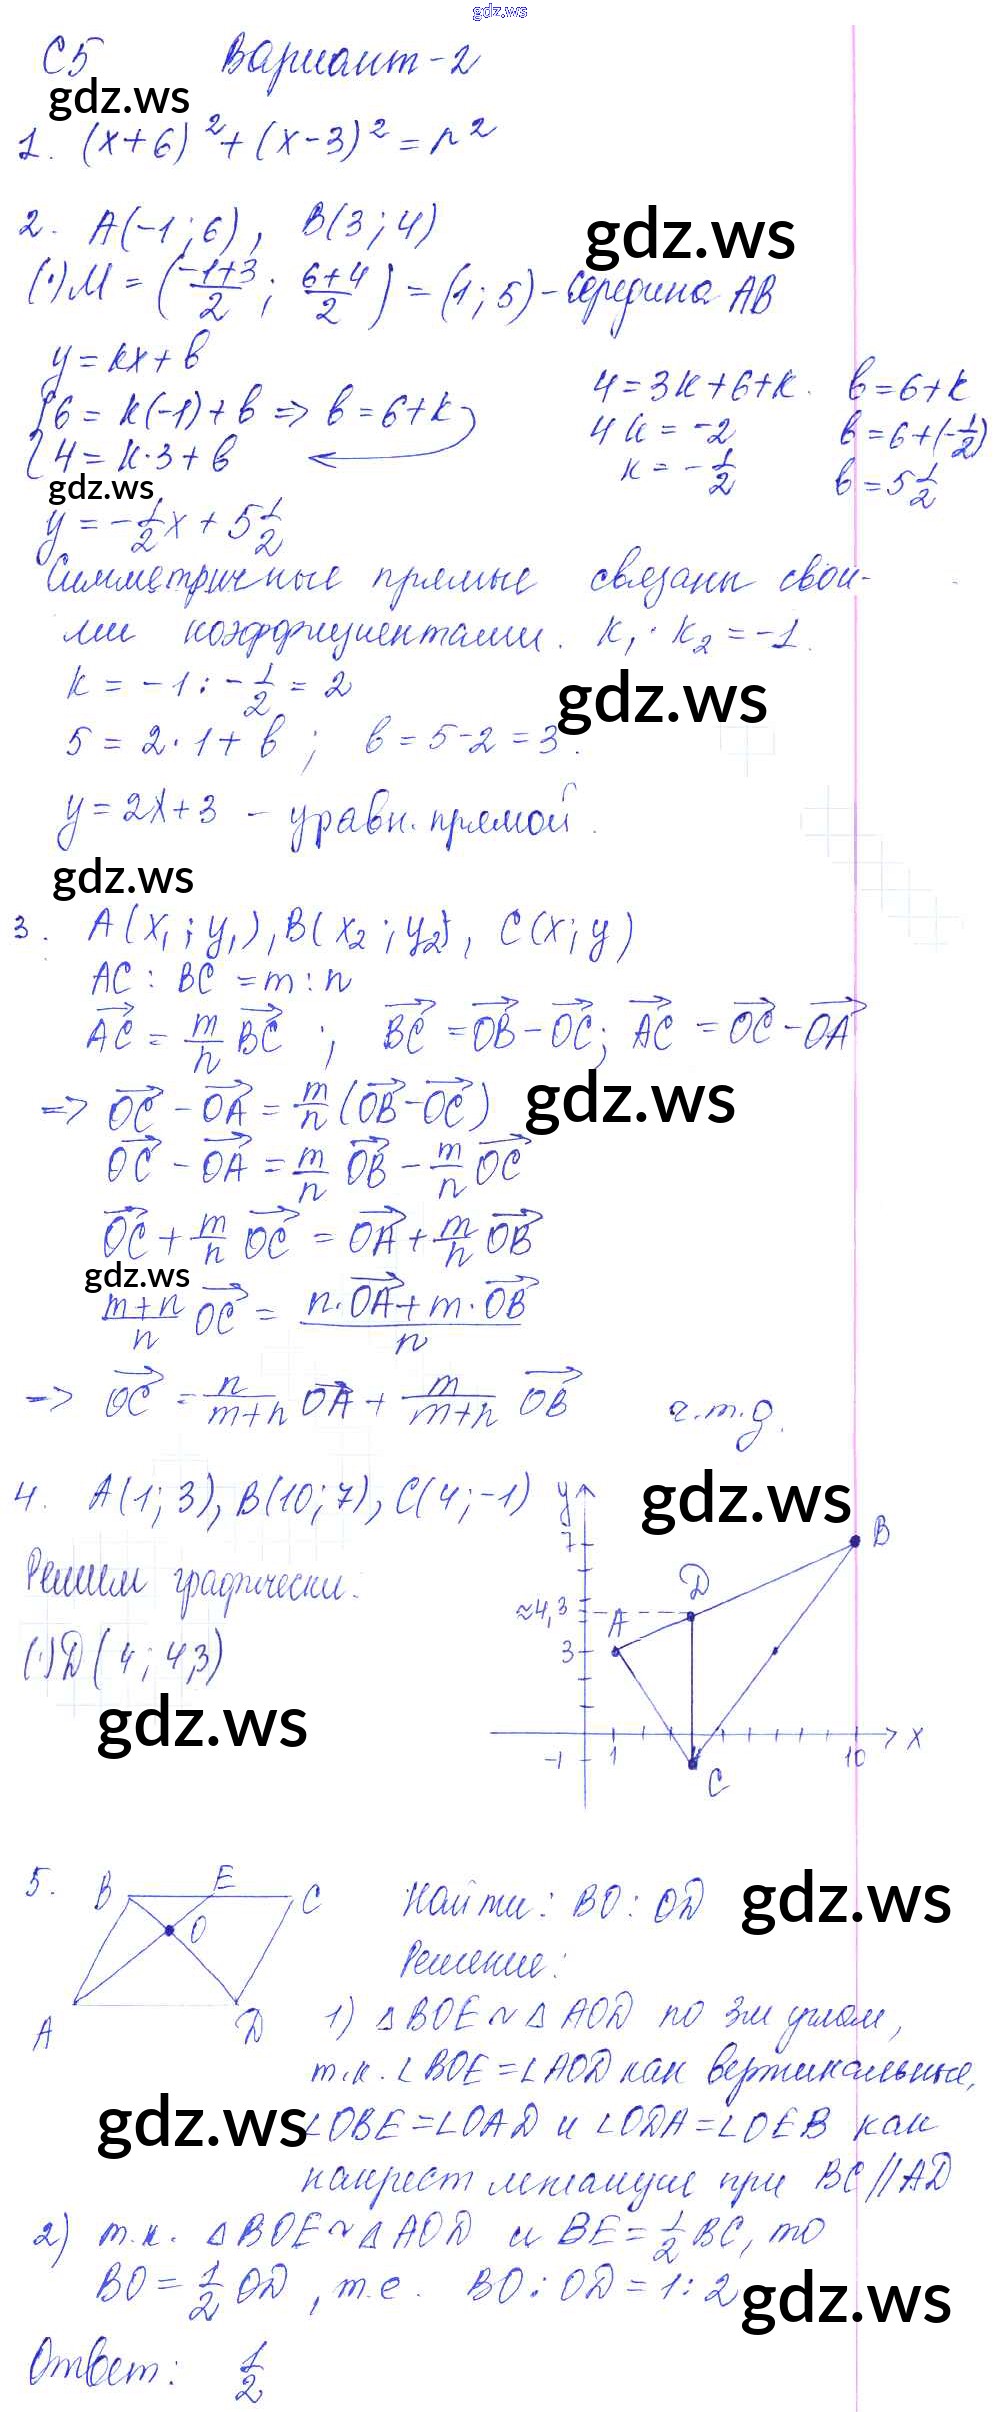 gdz.ws
С5 Вариант-2
gdz.ws
1. (x+6)² + (x-3)² = r²
2. A(-1; 6), B(3; 4)
gdz.ws
(·)M = (-1+3/2 ; 6+4/2) = (1; 5) - середина AB
y = kx + b
{ 6 = k(-1) + b => b = 6+k
4 = k·3 + b
4 = 3k+6+k. b = 6+k
4k = -2 b = 6+(-1/2)
k = -1/2 b = 5 1/2
gdz.ws
y = -1/2 x + 5 1/2
Симметричные прямые связаны свои-
ми коэффициентами. k₁ · k₂ = -1.
k = -1 : -1/2 = 2
gdz.ws
5 = 2·1 + b ; b = 5-2 = 3.
y = 2x+3 - уравн. прямой.
gdz.ws
3. A(x₁; y₁), B(x₂; y₂), C(x; y)
AC : BC = m : n
AC = m/n BC ; BC = OB - OC; AC = OC - OA
=> OC - OA = m/n (OB - OC)
gdz.ws
OC - OA = m/n OB - m/n OC
OC + m/n OC = OA + m/n OB
gdz.ws
m+n/n OC = n·OA + m·OB/n
=> OC = n/m+n OA + m/m+n OB ч.т.д.
4. A(1; 3), B(10; 7), C(4; -1)
gdz.ws
Решим графически.
(·)D (4; 4,3)
gdz.ws
y
7
B
D
≈4,3
A
3
-1
1
10
x
C
5. B E C
O
A D
Найти: BO : OD
gdz.ws
Решение:
1) △BOE ~ △AOD по 3м углом,
т.к. ∠BOE = ∠AOD как вертикальные,
gdz.ws
∠OBE = ∠OAD и ∠ODA = ∠OEB как
накрест лежащие при BC // AD
2) т.к. △BOE ~ △AOD и BE = 1/2 BC, то
BO = 1/2 OD, т.е. BO : OD = 1 : 2
gdz.ws
Ответ: 1/2